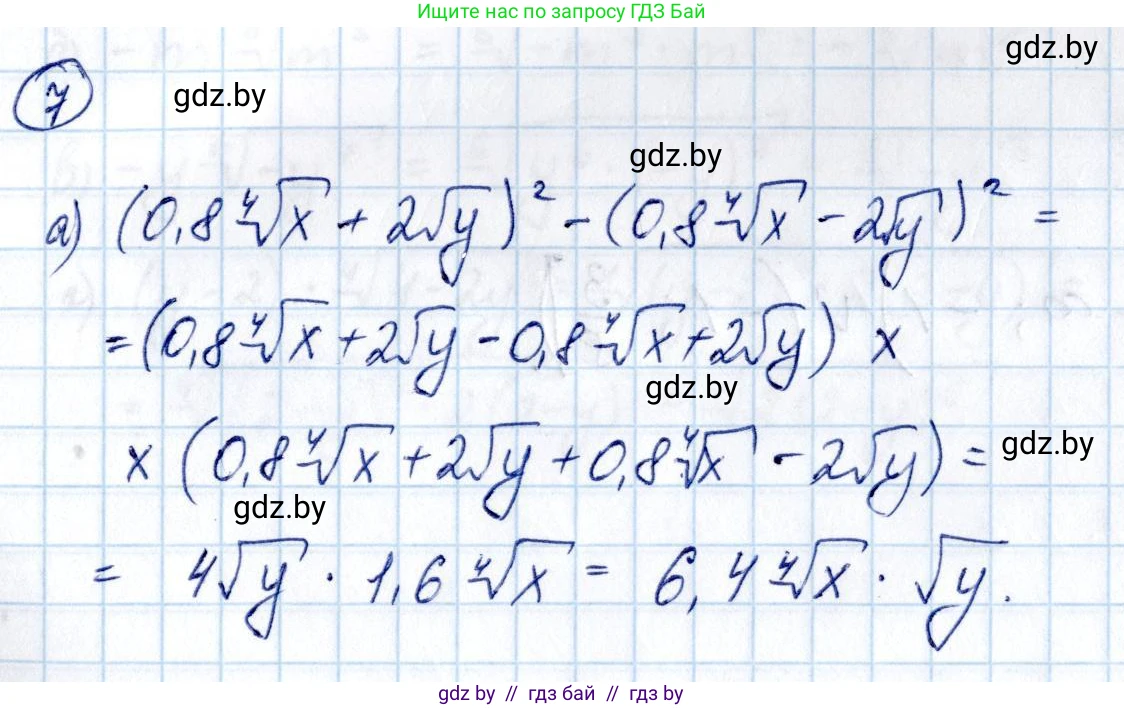 Ищите нас по запросу ГДЗ Бай
gdz.by
7
gdz.by
gdz.by
а) (0,8 ∜x + 2√y)² - (0,8 ∜x - 2√y)² =
= (0,8 ∜x + 2√y - 0,8 ∜x + 2√y) х
gdz.by
х (0,8 ∜x + 2√y + 0,8 ∜x - 2√y) =
gdz.by
gdz.by
= 4√y · 1,6 ∜x = 6,4 ∜x · √y.
gdz by // гдз бай // гдз by